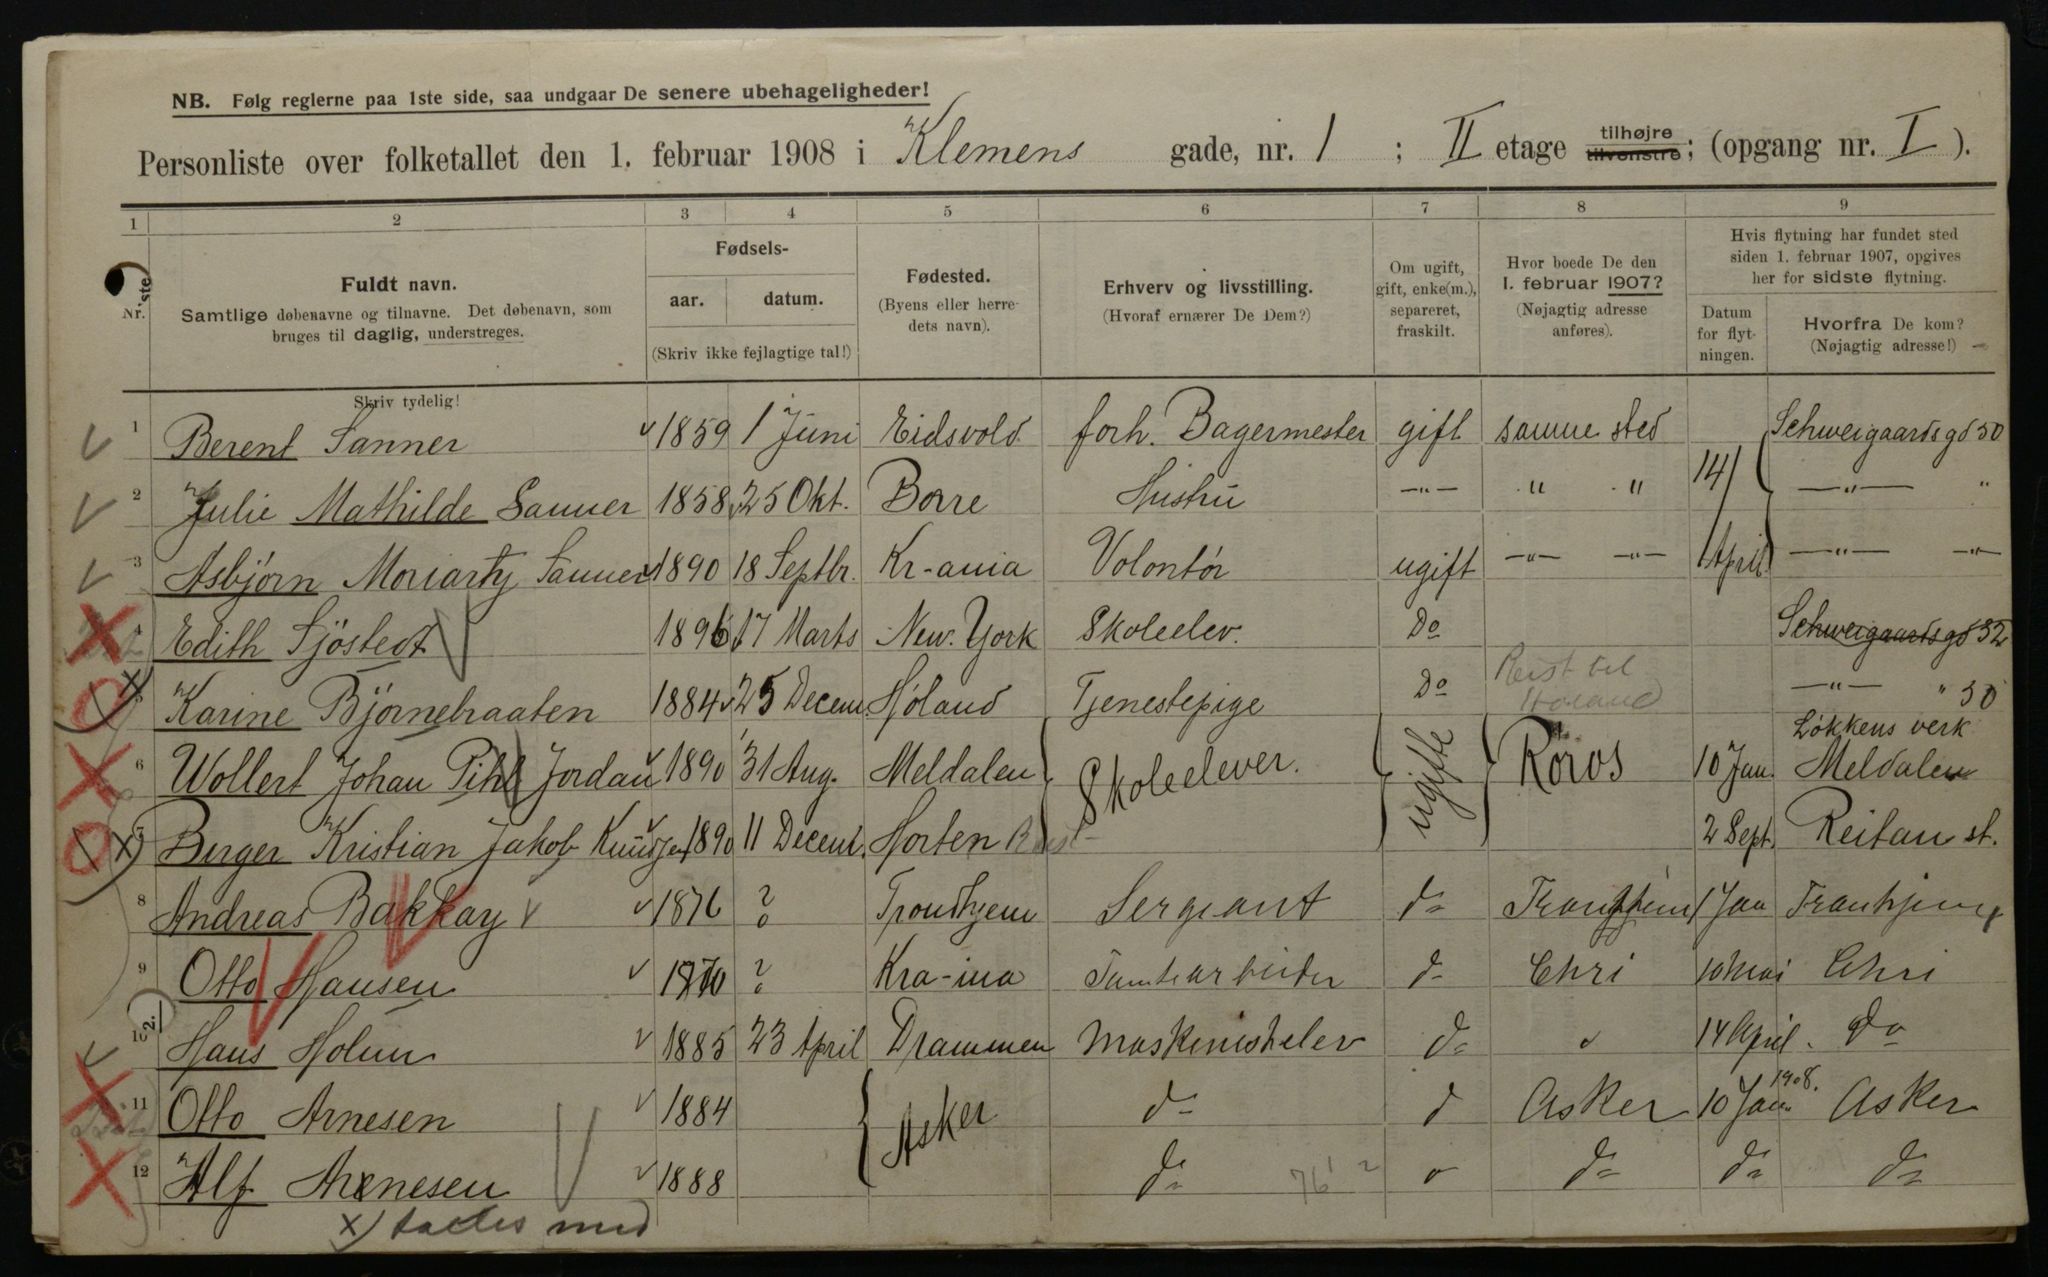 NB. Følg reglerne paa 1ste side, saa undgaar De senere ubehageligheder!
Personliste over folketallet den 1. februar 1908 i Klemens gade, nr. 1 ; II etage tilhøjre tilvenstre; (opgang nr. I ).
1 2 3 4 5 6 7 8 9
Nr.
Fuldt navn.
Samtlige døbenavne og tilnavne. Det døbenavn, som
bruges til daglig, understreges.
Skriv tydelig!
Fødsels-
aar. datum.
(Skriv ikke fejlagtige tal!)
Fødested.
(Byens eller herre-
dets navn).
Erhverv og livsstilling.
(Hvoraf ernærer De Dem?)
Om ugift,
gift, enke(m.),
separeret,
fraskilt.
Hvor boede De den
1. februar 1907?
(Nøjagtig adresse
anføres).
Hvis flytning har fundet sted
siden 1. februar 1907, opgives
her for sidste flytning.
Datum
for flyt-
ningen.
Hvorfra De kom?
(Nøjagtig adresse!)
1 Berent Sanner 1859 1 Juni Eidsvold forh. Bagermester gift samme sted Schweigaardsgd 50
2 Julie Mathilde Sanner 1858 25 Okt. Borre Hustru —"— " " 14/ —"— "
3 Asbjørn Moriarty Sanner 1890 18 Septbr. Kr-ania Volontør ugift —"— —"— April —"— —"—
4 Edith Sjöstedt 1896 17 Marts New. York Skoleelev. Do Schweigaardsgd 32
5 Karine Björnebraaten 1884 25 Decem. Høland Tjenestepige Do Reist til Høland —"— " 30
6 Wollert Johan Pihl Jordan 1890 31 Aug. Meldalen Skoleelever. ugifte Röros 10 Jan. Løkkens verk Meldalen
7 Berger Kristian Jakob Knudsen 1890 11 Decem. Horten Reist 2 Sept. Reitan st.
8 Andreas Bakkay 1876 ? Trondhjem Sergeant do Trondhjem 1 Jan Tronhjem
9 Otto Hansen 1870 ? Kra-ina Tomtearbeider d- Chri 10 Mai Chri
10 Hans Holm 1885 23 April Drammen Maskinistelev do 14 April. do
11 Otto Arnesen 1884 Asker do d Asker 10 Jan. 1908. Asker
12 Alf Arnesen 1888 do 76 1 2 do do do
x) taltes med